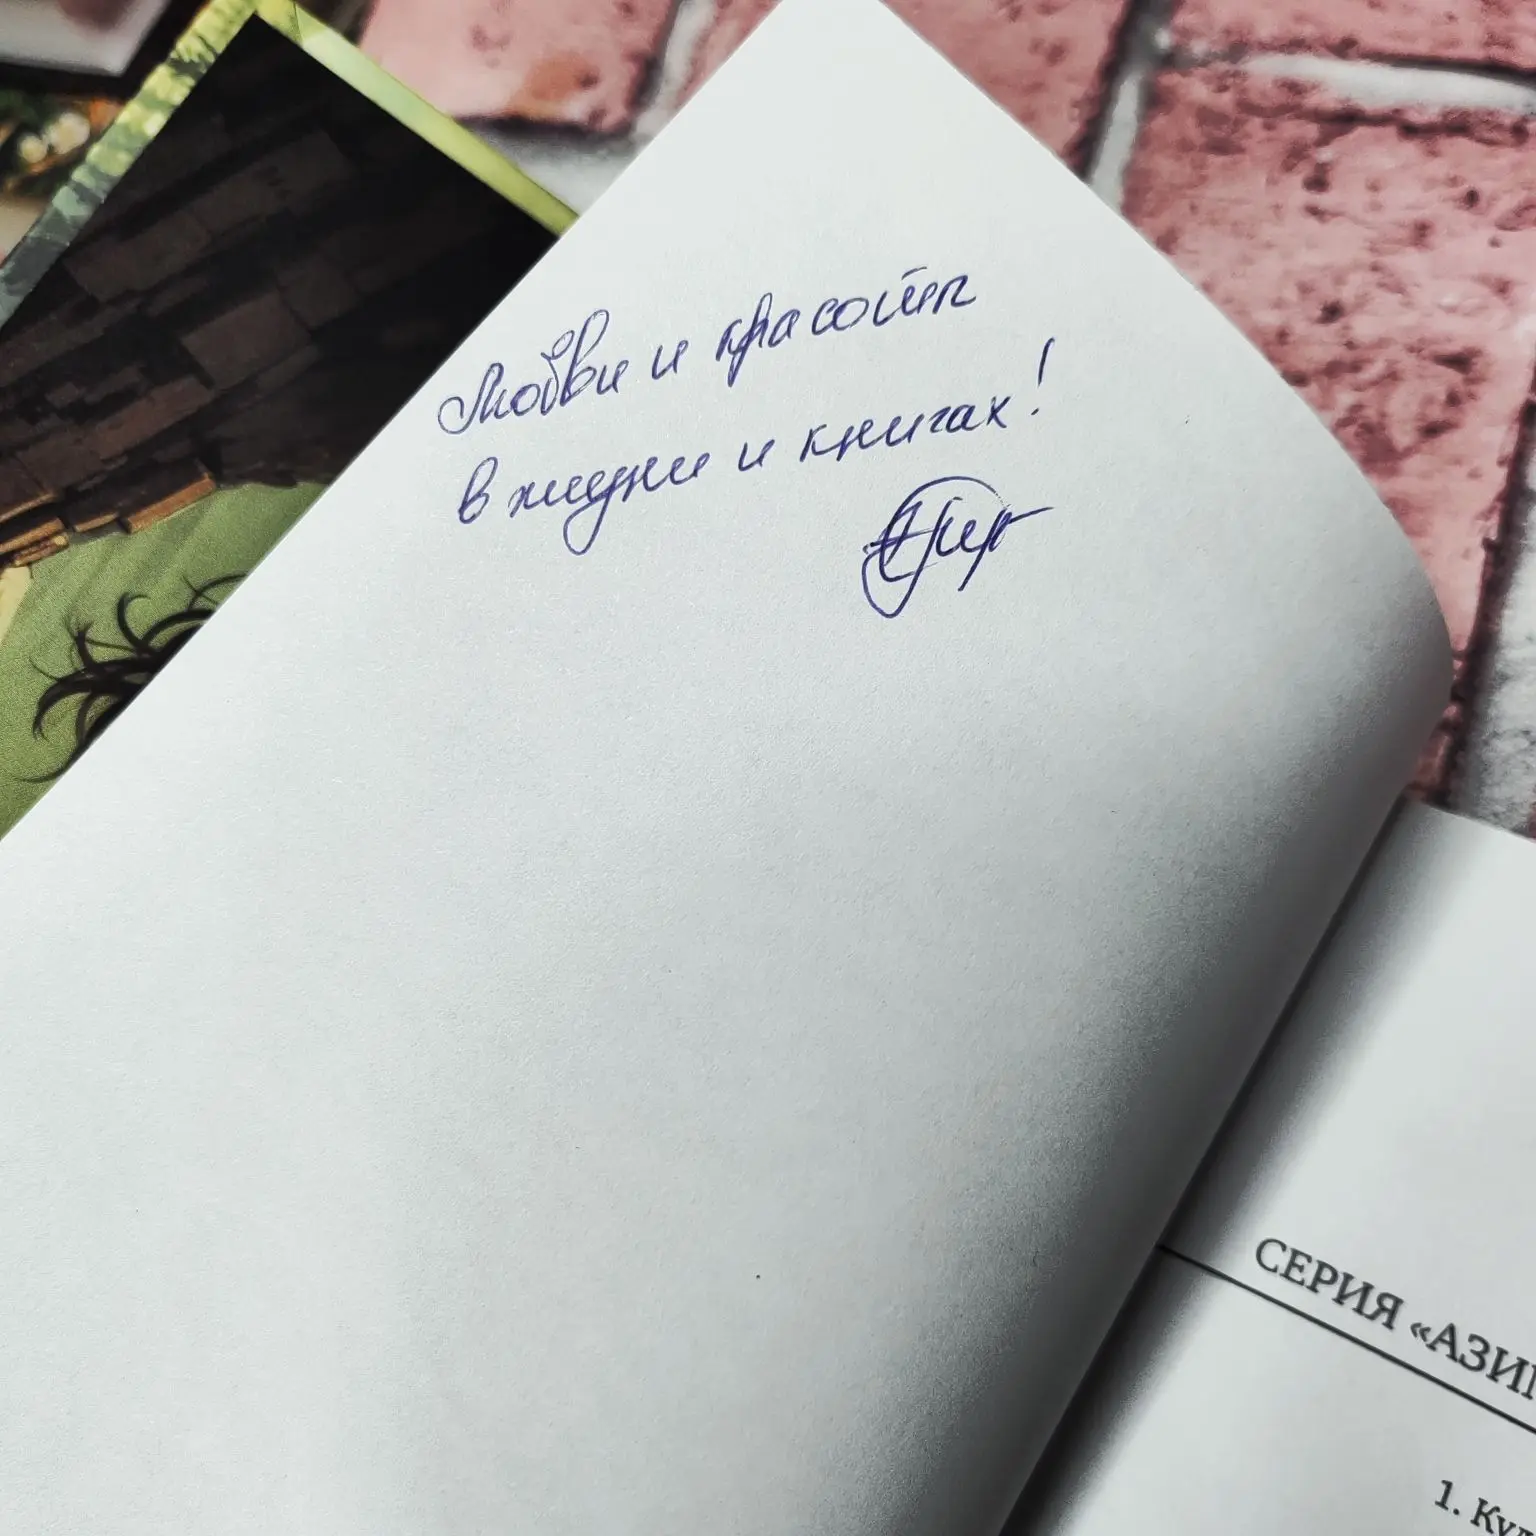 Любви и красоты
в жизни и книгах!
СЕРИЯ «АЗИ
1. Ку